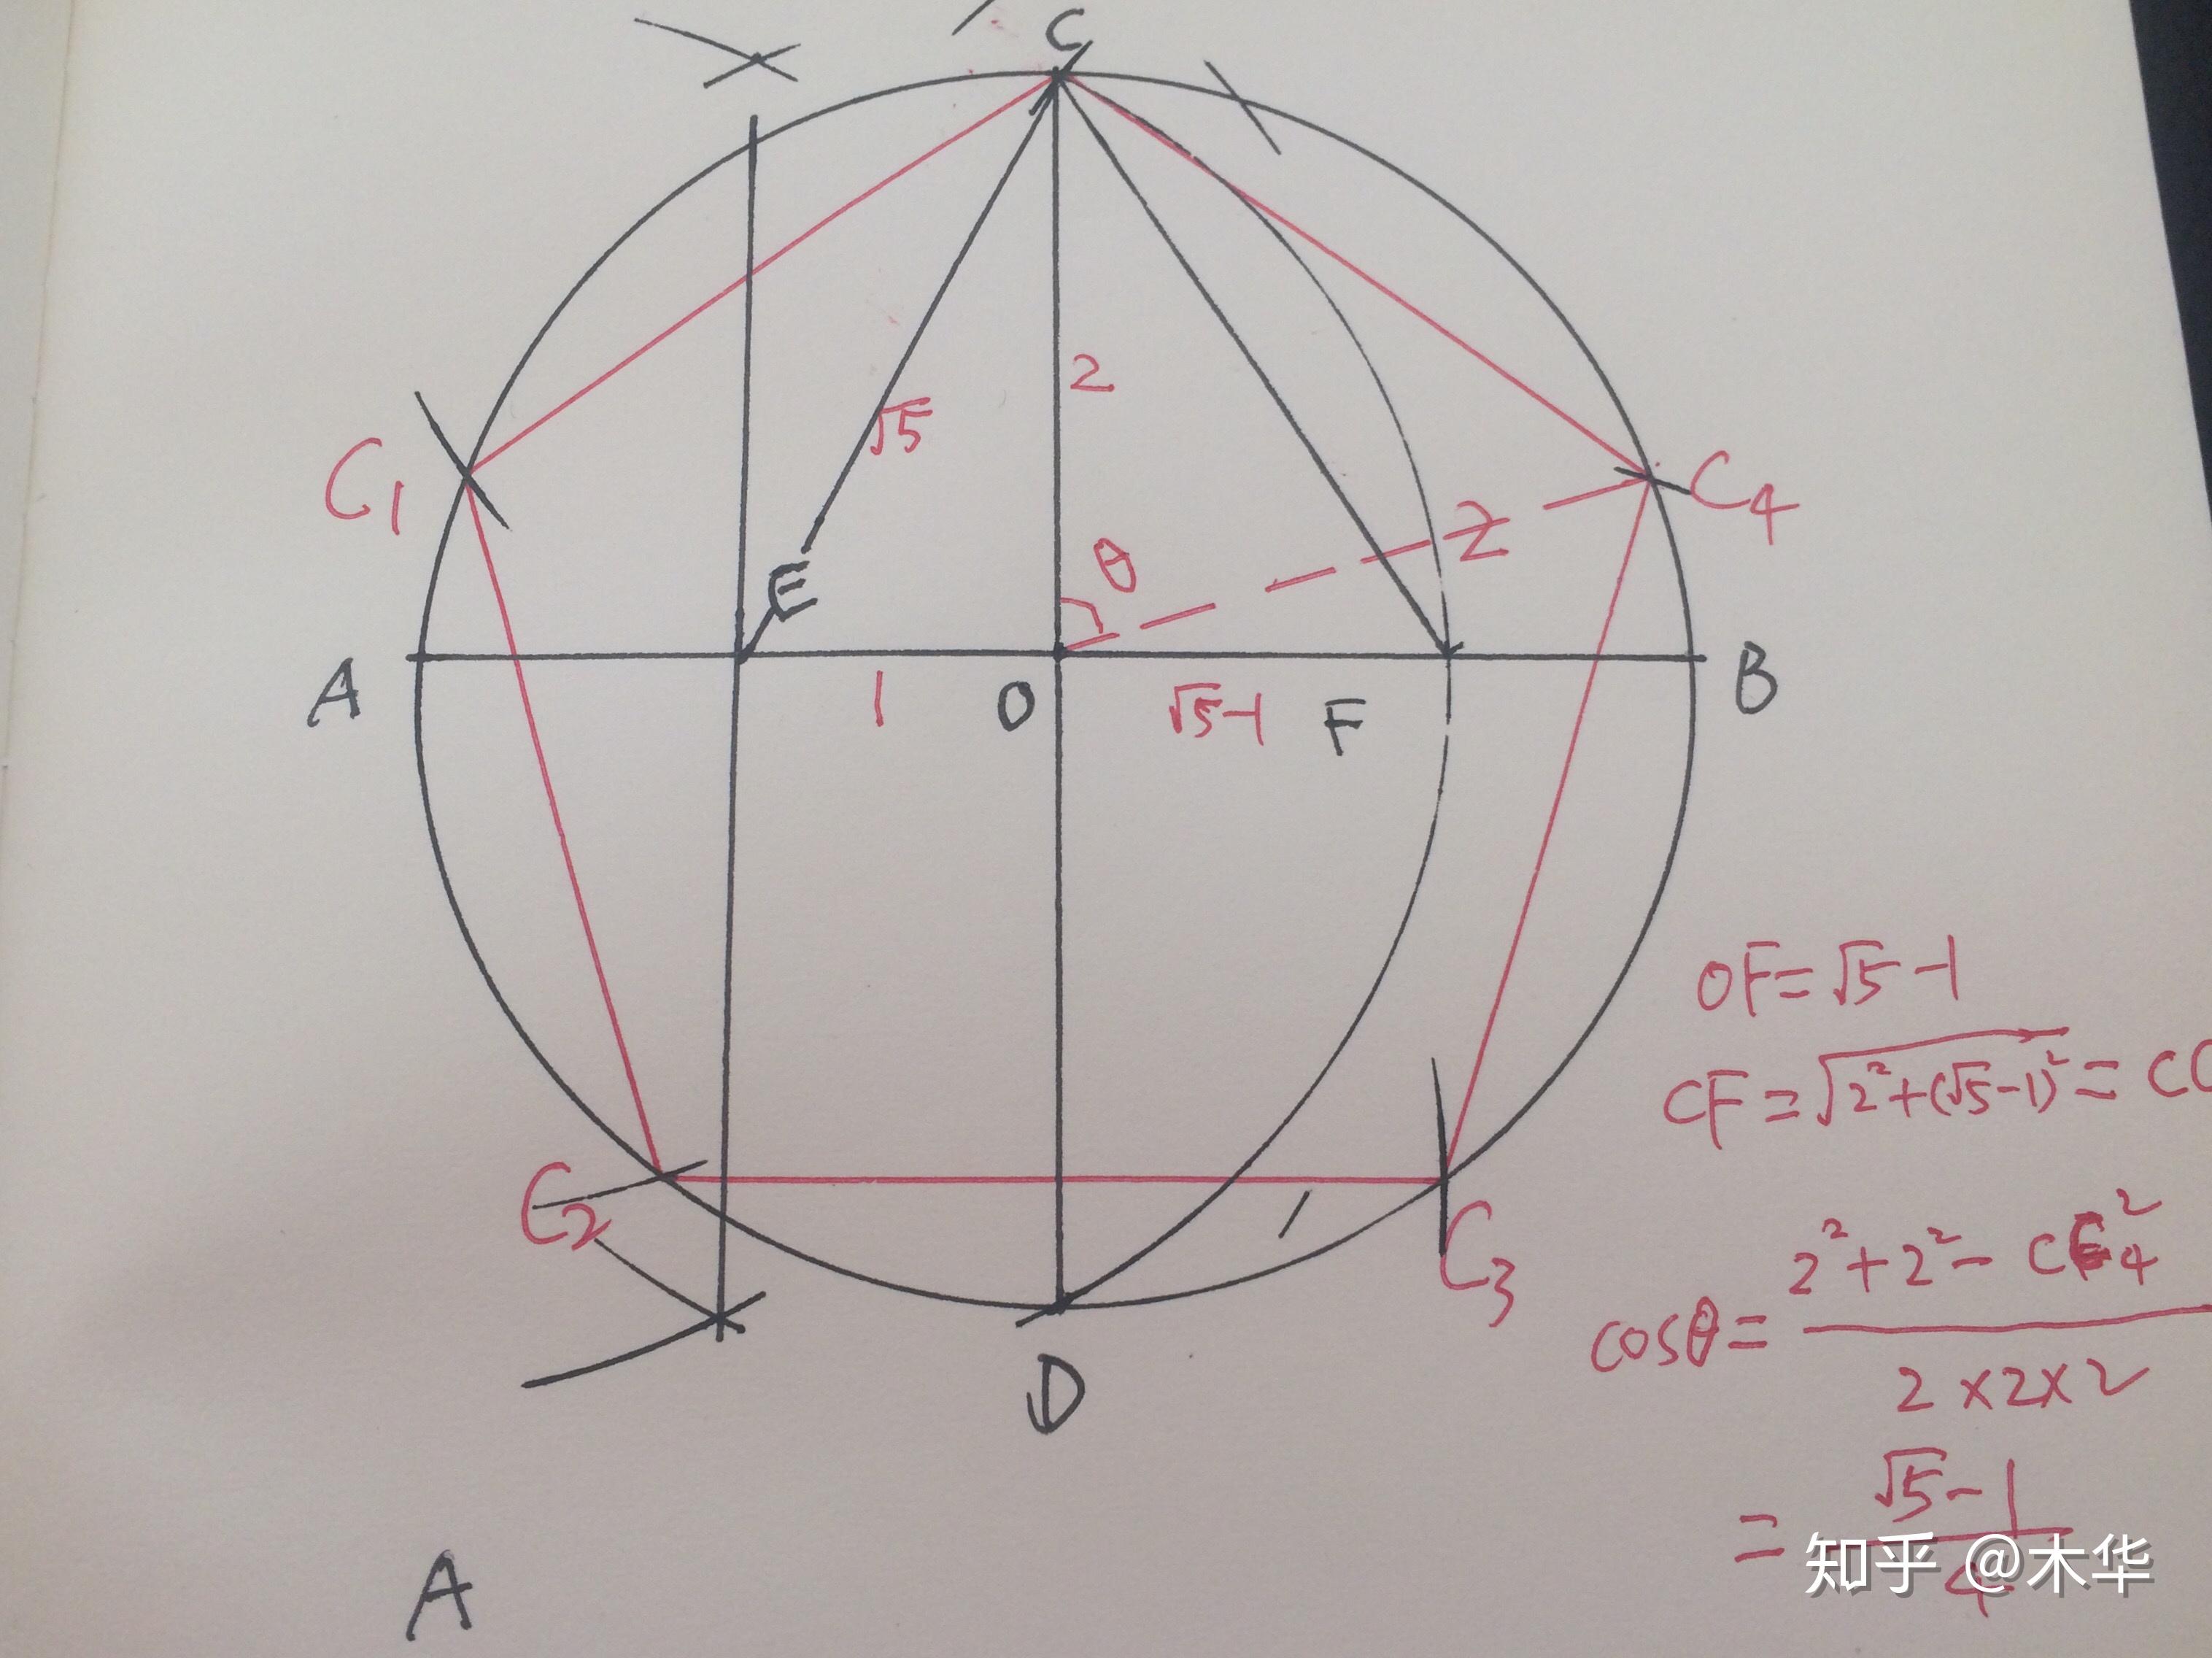 C
2
√5
C1
C4
2
θ
E
A
1
O
√5-1
F
B
OF=√5-1
CF=√2²+(√5-1)²=CC
C2
C3
cosθ=2²+2²-CC4²/2×2×2
D
=√5-1/4
知乎 @木华
A